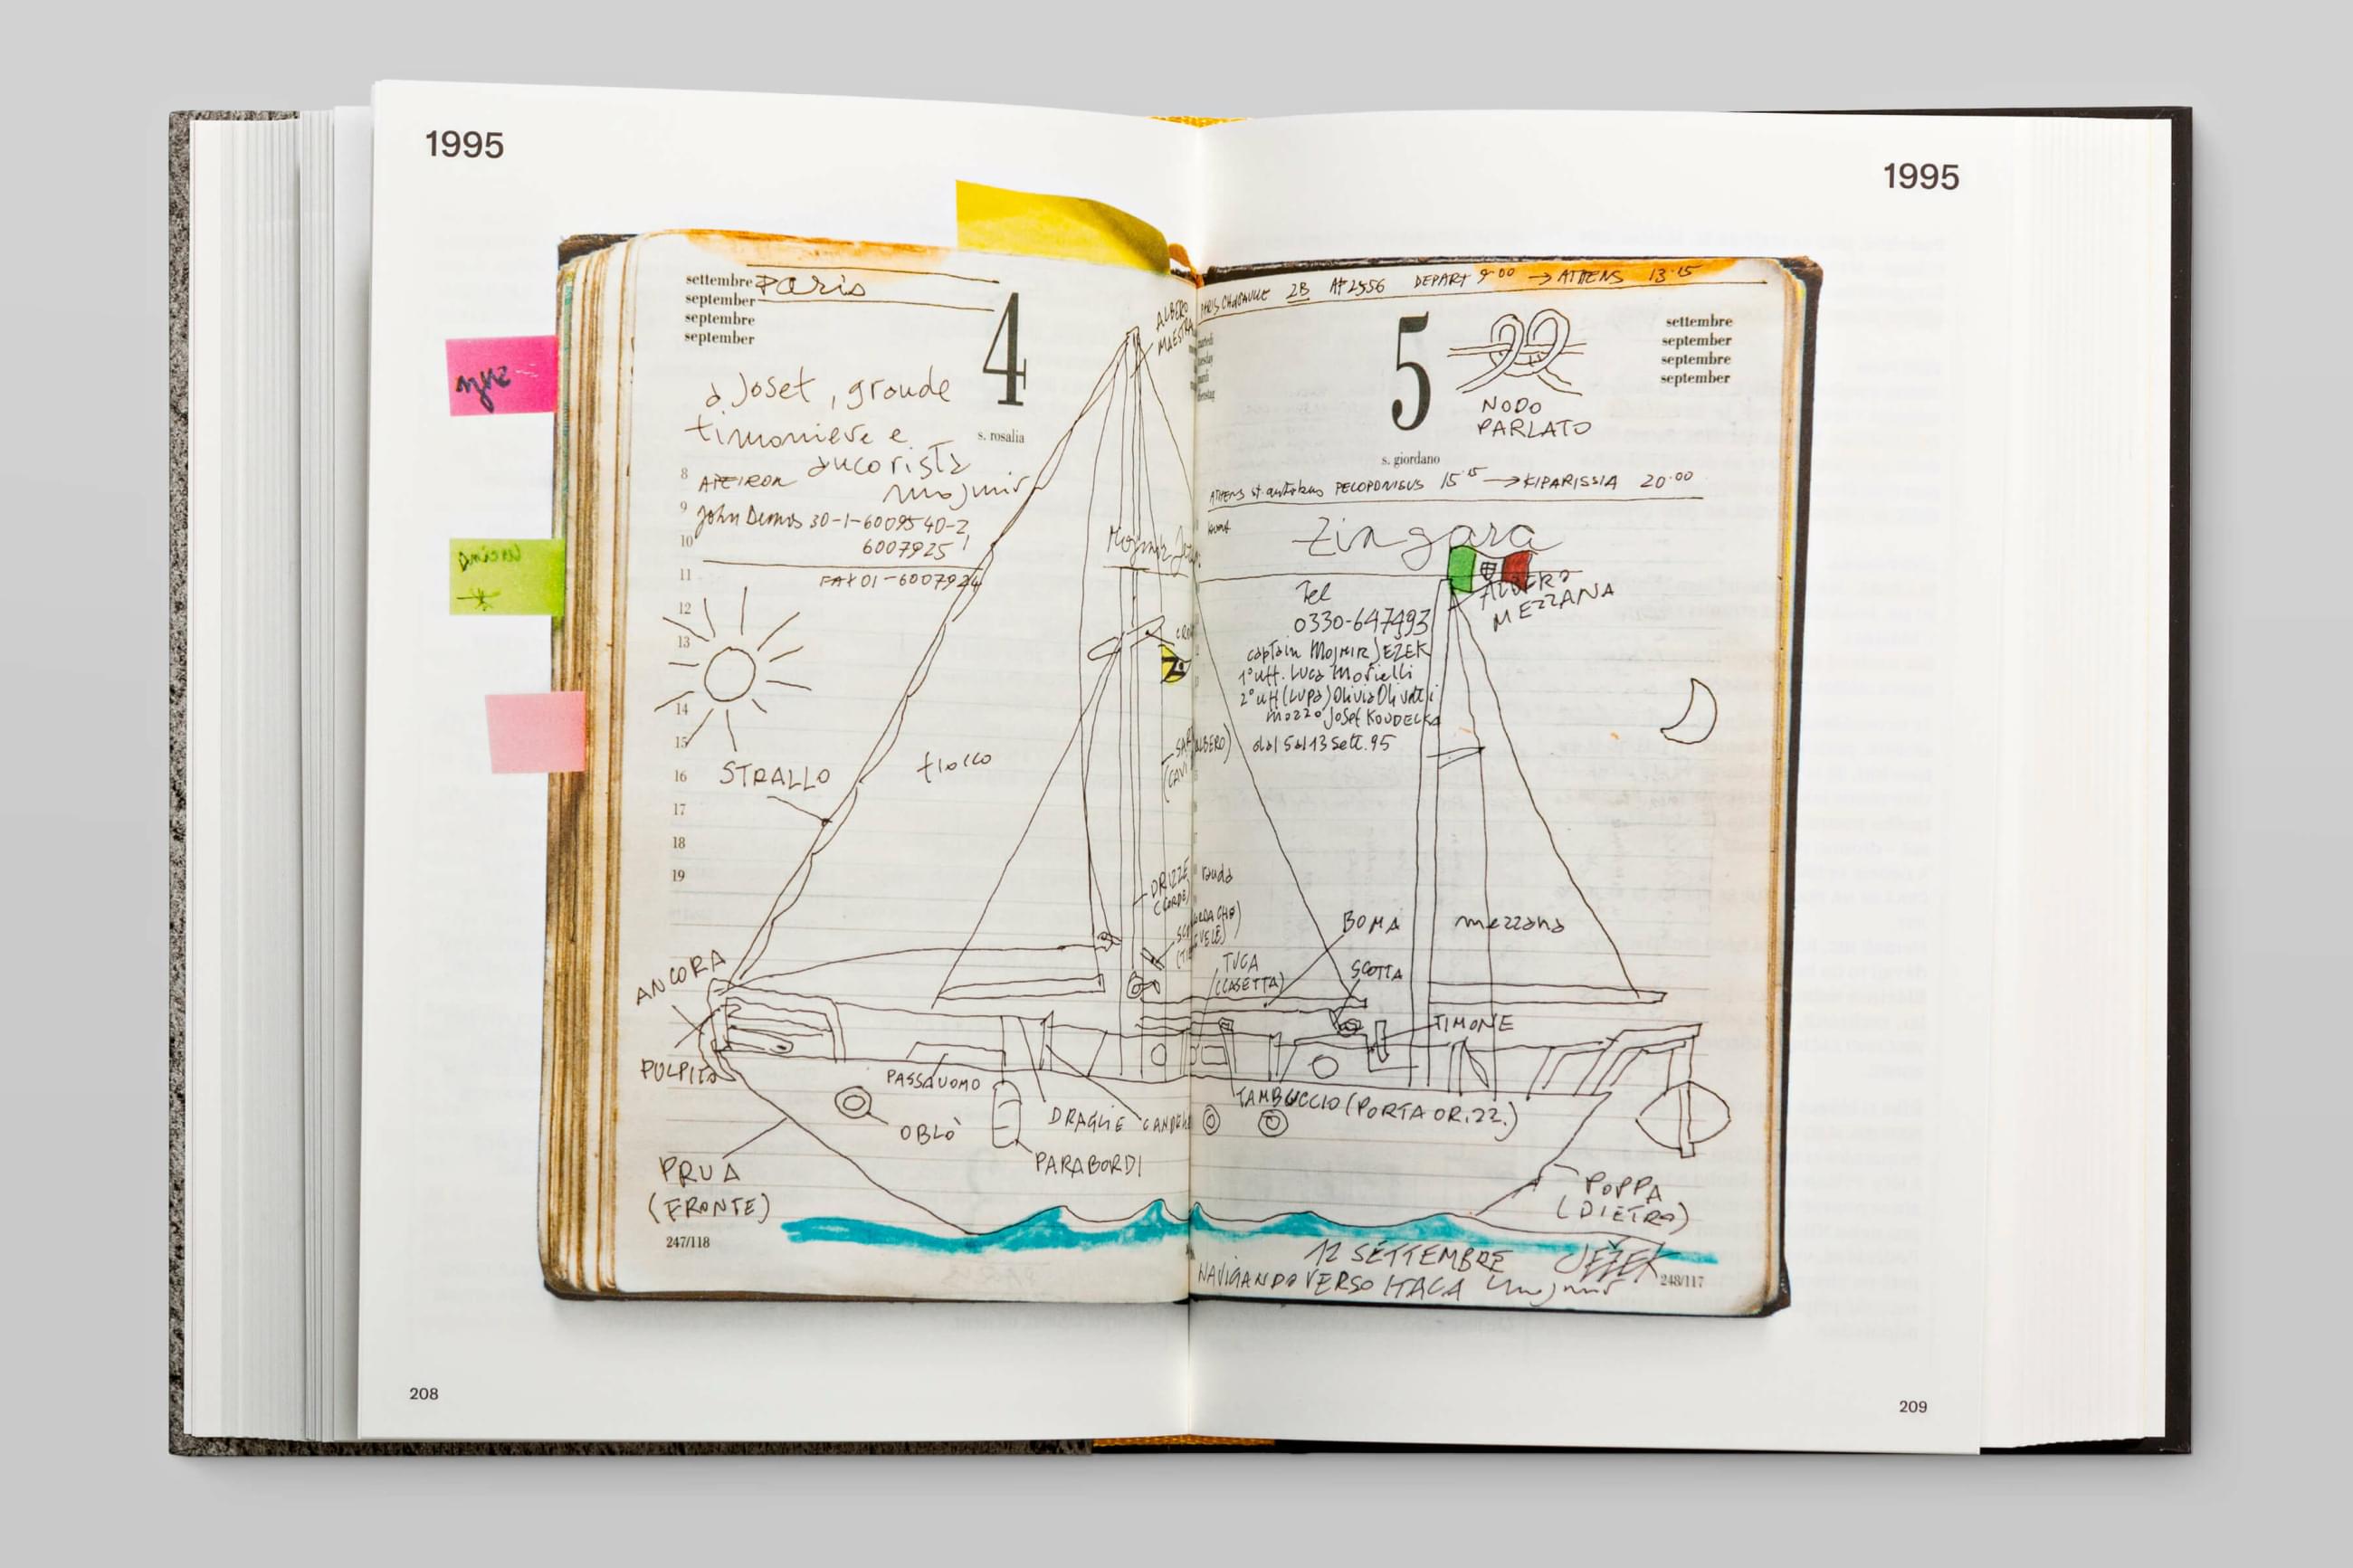 1995
settembre Paris
september
septembre
september
4
s. rosalia
a Josef, grande
timoniere e
ancorista
Mojmir
8 APEIRON
9 John Demos 30-1-6009540-2
10 6007925
11 FAX 01-6007924
12
13
14
15
16
17
18
19
ALBERO
MAESTRA
STRALLO
fiocco
DRIZZE
(CORDE)
ANCORA
PULPITO
PASSAUOMO
OBLÒ
DRAGLIE
PARABORDI
PRUA
(FRONTE)
247/118
208
1995
2B AF2556 DEPART 9·00 → ATHENS 13·15
5
s. giordano
settembre
september
septembre
september
NODO
PARLATO
ATHENS st. autobus PELOPONISUS 15·15 → KIPARISSIA 20·00
Zingara
ALBERO
MEZZANA
Tel
0330-647493
captain MOJMIR JEZEK
1° uff. Luca
2° uff (Lupa) Olivia
mozzo Josef KOUDELKA
dal 5 al 13 Sett. 95
randa
BOMA
mezzana
TUGA
(CASETTA)
SCOTTA
TIMONE
TAMBUCCIO (PORTA ORIZZ.)
POPPA
(DIETRO)
12 SETTEMBRE JEŽEK
NAVIGANDO VERSO ITACA Mojmir
248/117
209